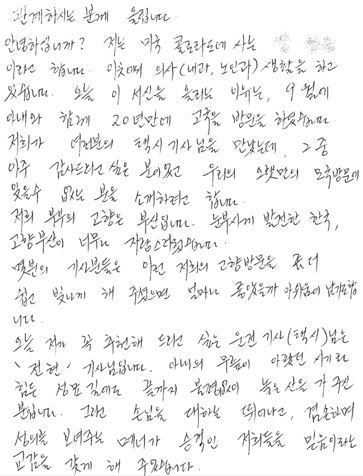 관계하시는 분께 올립니다.
안녕하십니까? 저는 미국 콜로라도에 사는
이라고 합니다. 이곳에서 의사(내과, 노인과) 생활을 하고
있습니다. 오늘 이 서신을 올리는 이유는, 9월에
아내와 함께 20년만에 고국을 방문을 하였습니다
저희가 여러분의 택시 기사님을 만났는데, 그중
아주 감사드리고 싶은 분이 있고 우리의 오랫만의 모국방문에
잊을수 없는 분을 소개하려고 합니다.
저희 부부의 고향은 부산입니다. 눈부시게 발전한 한국,
고향부산이 너무나 자랑스러웠습니다.
몇분의 기사분들은 이런 저희의 고향방문을 좀더
쉽고 빛나게 해 주셨으면 얼마나 좋았을까 아쉬움이 남기도합
니다.
오늘 제가 꼭 추천해 드리고 싶은 운전 기사(택시)님은
"전현" 기사님입니다. 아내의 무릎이 아팠던 시기라
힘든 성묘 길에도 끝까지 불평없이 높은 산을 가 주신
분입니다. 그리고 손님을 대하는 뛰어나고, 겸손하며
성의를 보여주는 매너가 승객인 저희들을 믿음이라는
교감을 갖게 해 주었습니다.